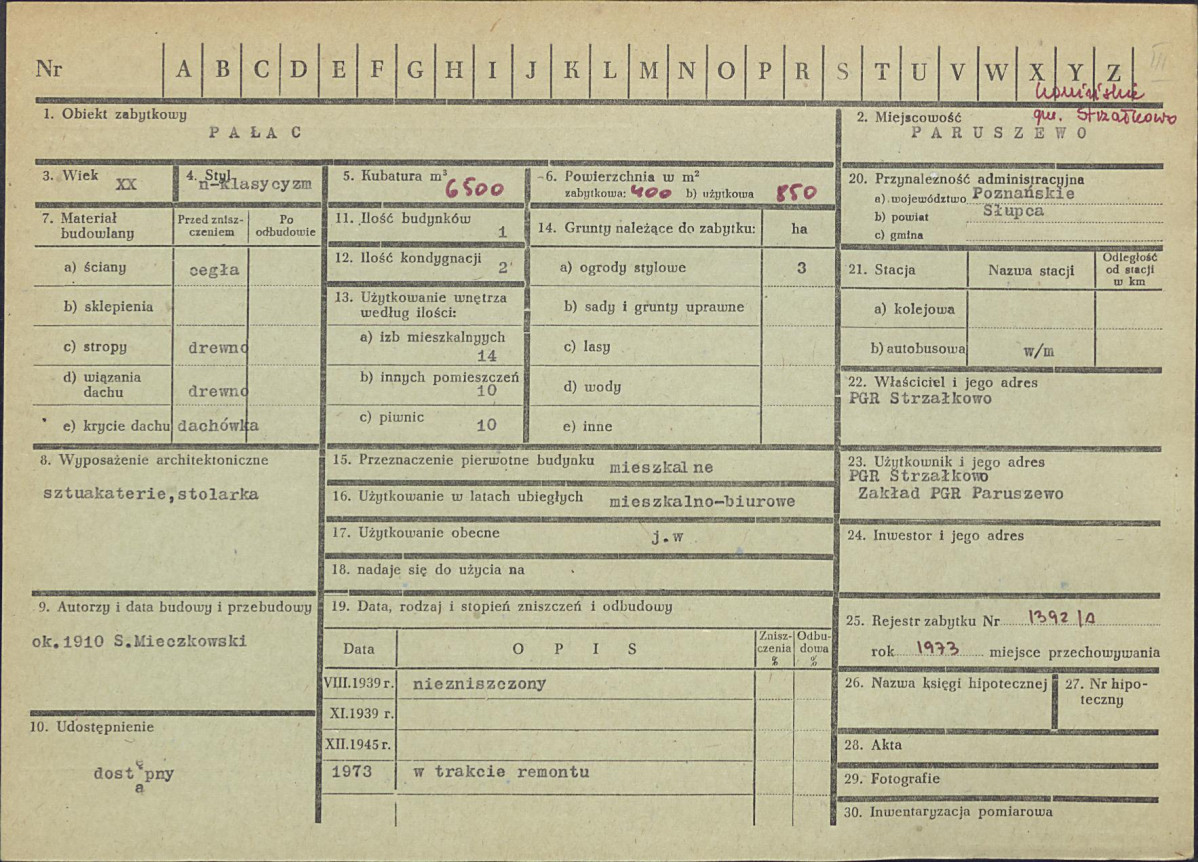 Nr A B C D E F G H I J K L M N O P R S T U V W X Y Z III
konińskie
gm. Strzałkowo
1. Obiekt zabytkowy
PAŁAC
2. Miejscowość
PARUSZEWO
3. Wiek
XX
4. Styl
n-klasycyzm
5. Kubatura m³
6500
6. Powierzchnia w m²
zabytkowa: 400 b) użytkowa 850
7. Materiał budowlany
Przed znisz-
czeniem
Po
odbudowie
a) ściany cegła
b) sklepienia
c) stropy drewno
d) wiązania
dachu drewno
e) krycie dachu dachówka
8. Wyposażenie architektoniczne
sztuakaterie,stolarka
9. Autorzy i data budowy i przebudowy
ok.1910 S.Mieczkowski
10. Udostępnienie
dostępny
a
11. Ilość budynków
1
12. Ilość kondygnacji
2
13. Użytkowanie wnętrza
według ilości:
a) izb mieszkalnych
14
b) innych pomieszczeń
10
c) piwnic 10
14. Grunty należące do zabytku: ha
a) ogrody stylowe 3
b) sady i grunty uprawne
c) lasy
d) wody
e) inne
15. Przeznaczenie pierwotne budynku mieszkalne
16. Użytkowanie w latach ubiegłych mieszkalno-biurowe
17. Użytkowanie obecne j.w
18. nadaje się do użycia na
19. Data, rodzaj i stopień zniszczeń i odbudowy
Data OPIS
Znisz-
czenia
%
Odbu-
dowa
%
VIII.1939 r. niezniszczony
XI.1939 r.
XII.1945 r.
1973 w trakcie remontu
20. Przynależność administracyjna
a) województwo Poznańskie
b) powiat Słupca
c) gmina
21. Stacja Nazwa stacji
Odległość
od stacji
w km
a) kolejowa
b) autobusowa w/m
22. Właściciel i jego adres
PGR Strzałkowo
23. Użytkownik i jego adres
PGR Strzałkowo
Zakład PGR Paruszewo
24. Inwestor i jego adres
25. Rejestr zabytku Nr 1392/A
rok 1973 miejsce przechowywania
26. Nazwa księgi hipotecznej
27. Nr hipo-
teczny
28. Akta
29. Fotografie
30. Inwentaryzacja pomiarowa